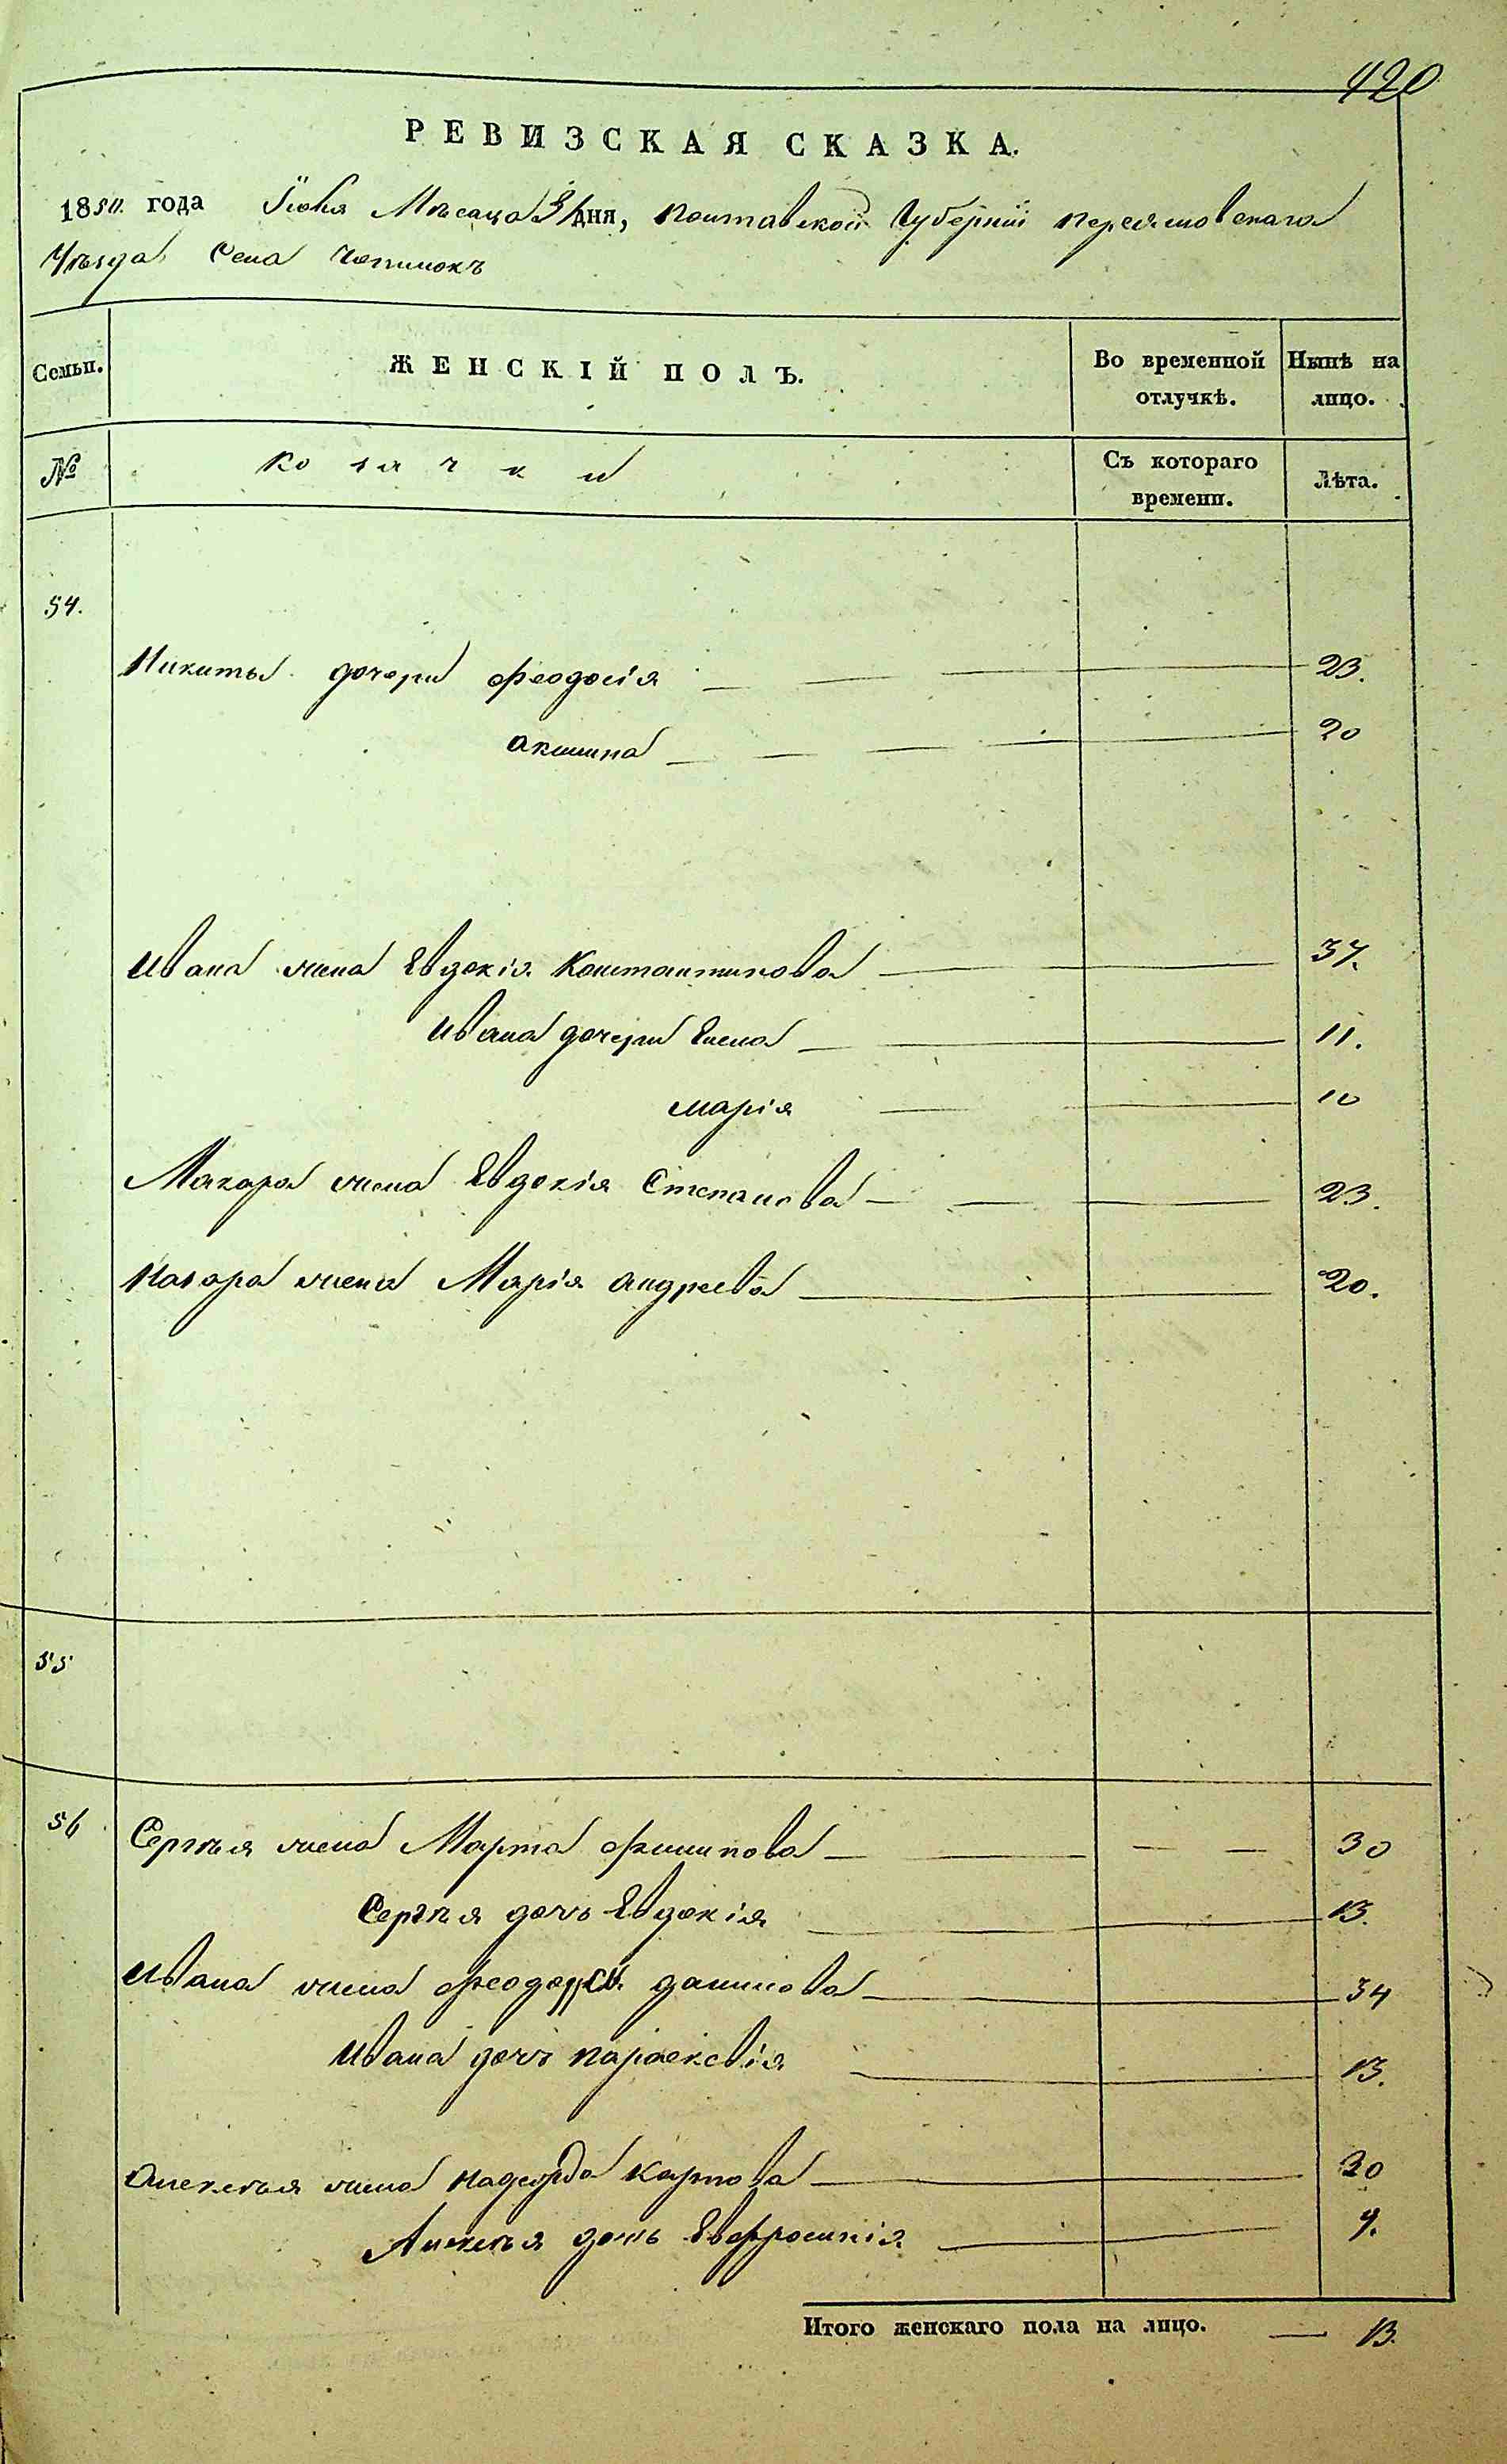 420
РЕВИЗСКАЯ СКАЗКА.
1850. года Іюля Мѣсаца 31 дня, Полтавской Губерніи Переяславскаго
Уѣзда, Села
Семьи. ЖЕНСКІЙ ПОЛЪ. Во временной отлучкѣ. Нынѣ на лицо.
№ Козачки Съ котораго времени. Лѣта.
54.
Никиты дочери Феодосія 23.
Акилина 20
Ивана жена Евдокія Константинова 37.
Ивана дочери Елена 11.
Марія 10
Макара жена Евдокія Степанова 23.
Назара жена Марія Андреева 20.
55
56 Сергѣя жена Марта Филипова 30
Сергѣя дочь Евдокія 13.
Ивана жена Данилова 34
Ивана дочь Параскевія 13.
Алексѣя жена Надежда Карпова 30
Алексѣя дочь Евфросинія 9.
Итого женскаго пола на лицо. 13.